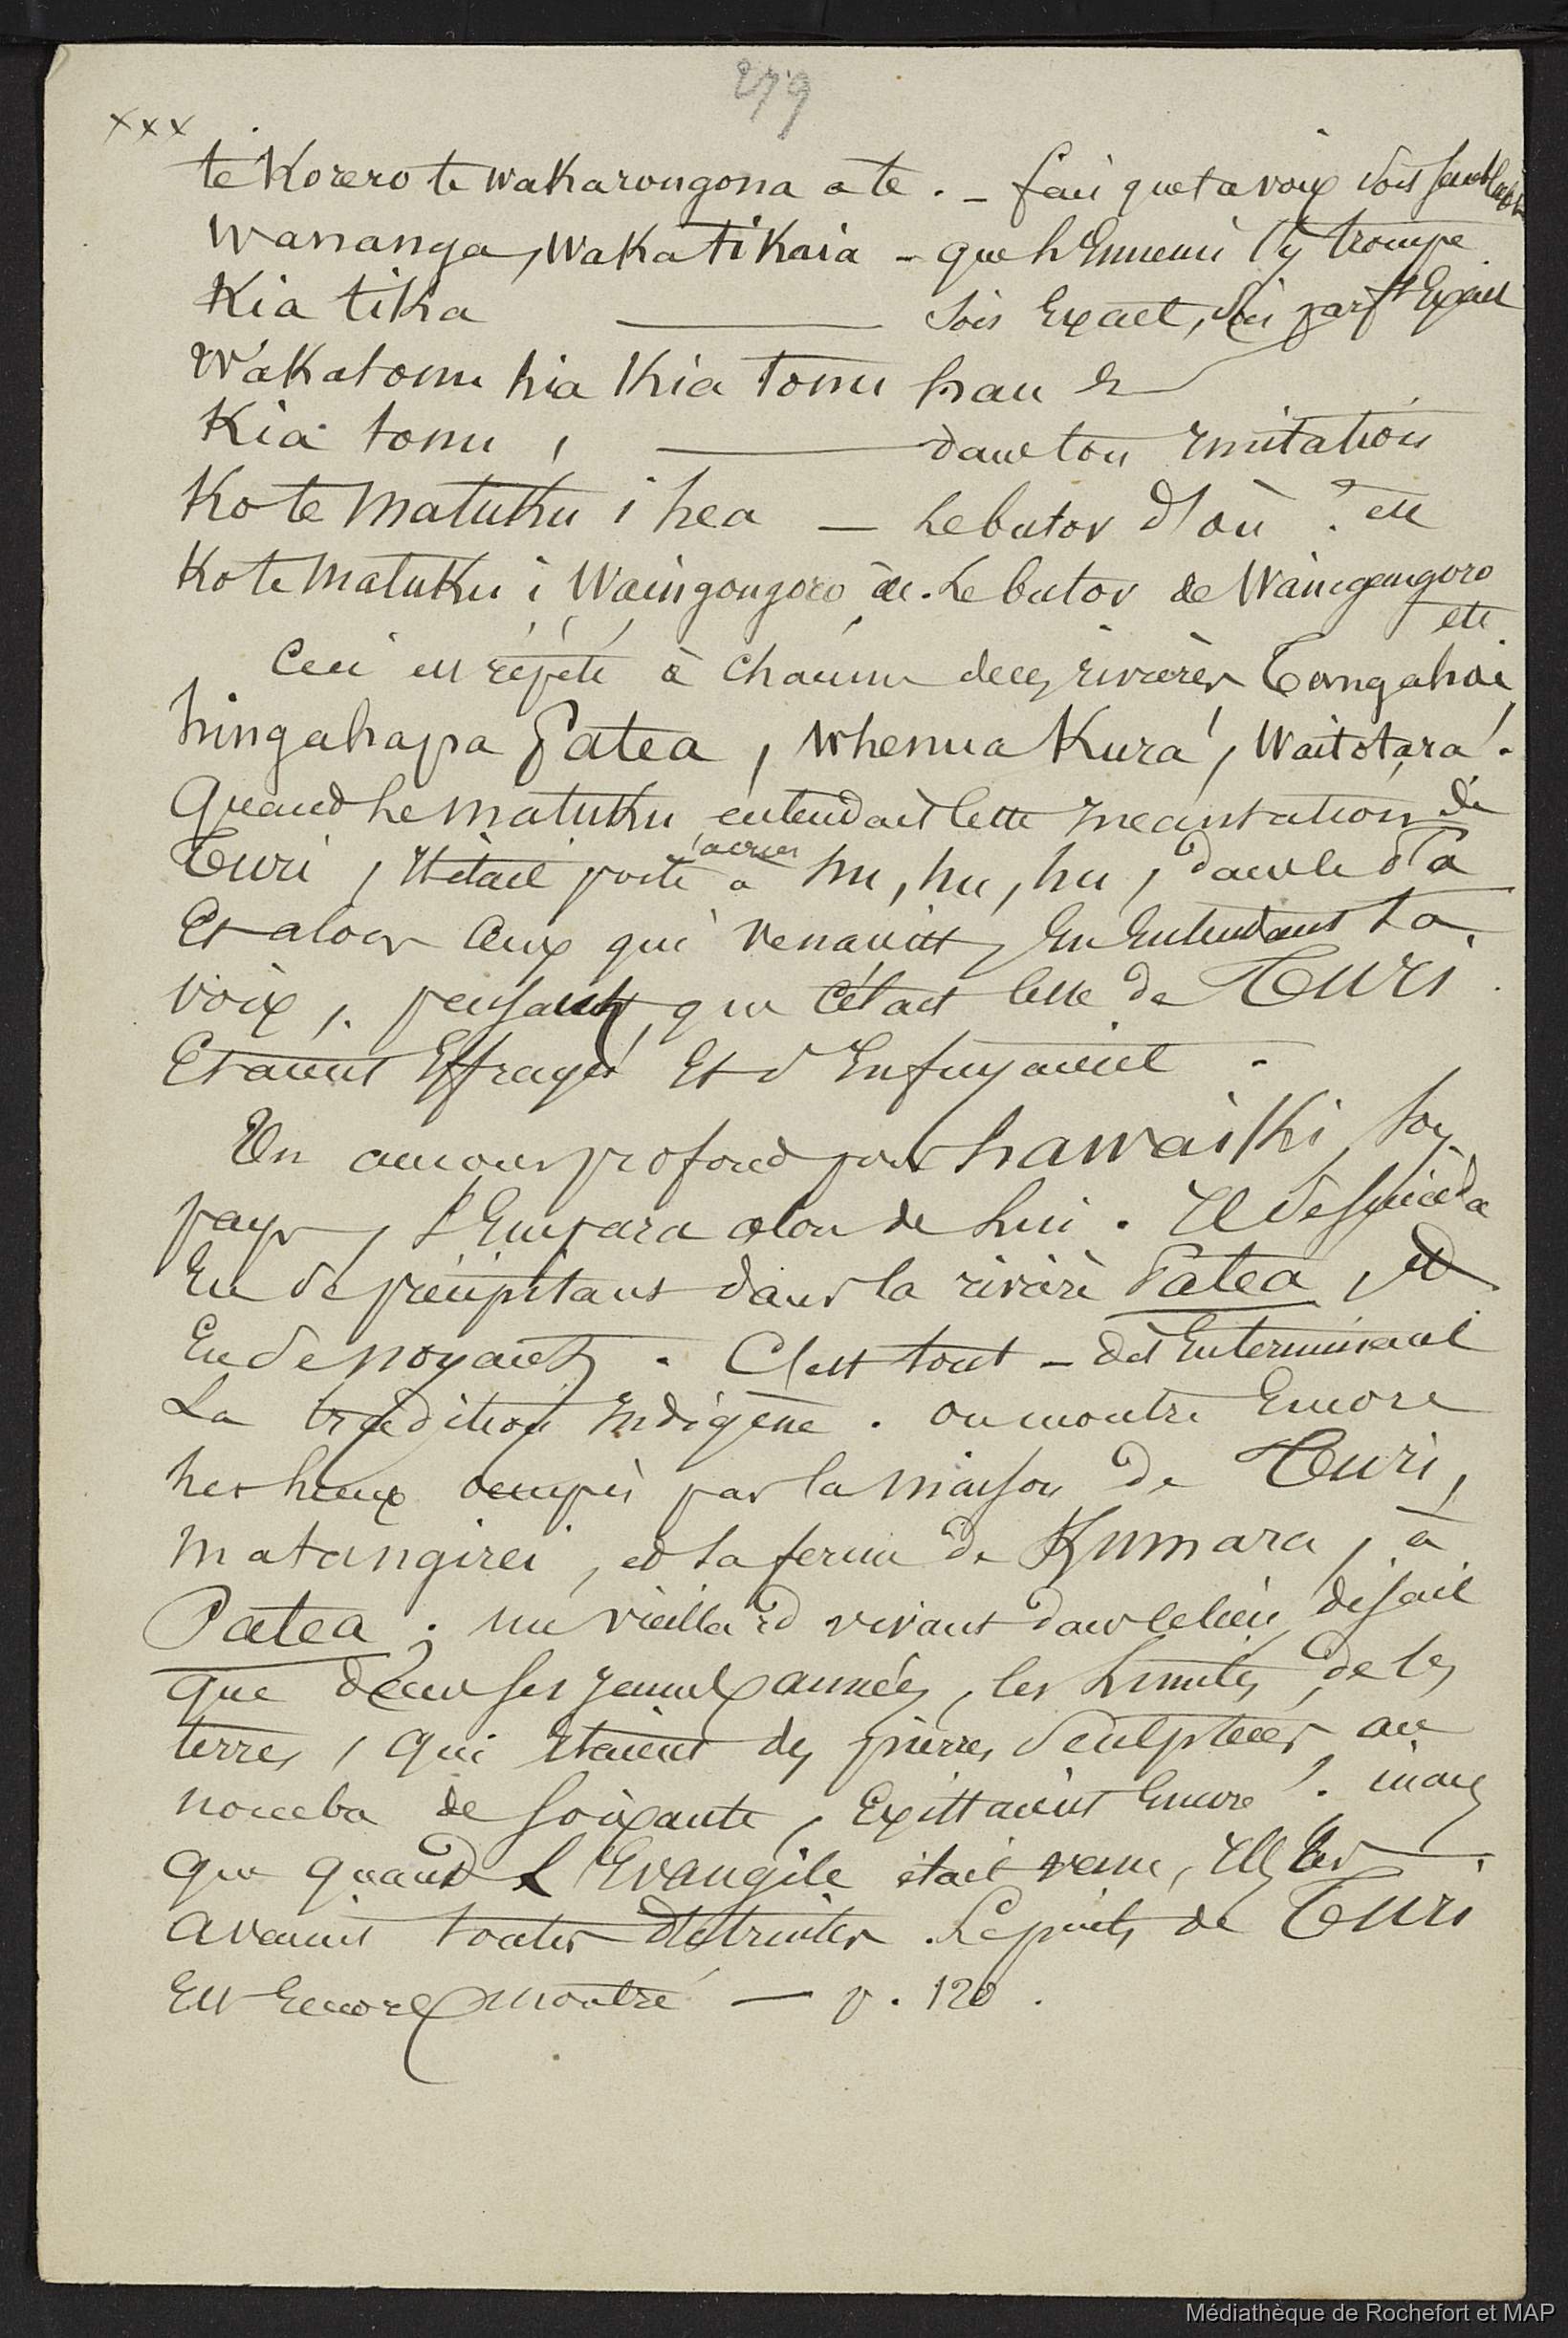 279
xxx
te Korero te wakarongona a te . – fais que ta voix soit semblable
Wananga, Wakatikaia – que l'Ennemi s'y trompe
Kia tika ——— Sois Exact, Sois parft Exact
Wakatomu hia Kia tomu hau
Kia tomu, ——— dans ton Imitation
Ko te Matuku i hea — Le butor d'où ? etc
Ko te Matuku i Waingongoro &c. Le butor de Waingongoro
etc.
Ceci est répété à chacune des rivières Tangahoe,
hingahapa Patea, Whenua Kura, Waitotara.
Quand le matuku entendait cette Incantation de
Turi, Il était porté à crier hu, hu, hu, dans le Pa
Et alors Ceux qui venaient, En Entendant la
voix, pensant que c'était celle de Turi
Etaient Effrayés Et s'Enfuyaient .
Un amour profond pour hawaiki, son
pays, s'Empara alors de lui . Il se suicida
En se précipitant dans la rivière Patea, et
En se noyant . C'est tout – dit En terminant
La tradition Indigène . on montre Encore
les lieux occupés par la maison de Turi,
matangirei, et la ferme de Kumara, à
Patea ; un vieillard vivant dans le lieu, disait
que dans ses jeunes années, les limites de les
terres, qui étaient des pierres Sculptées au
nombre de soixante, Existaient Encore . mais
que quand L'Evangile était venu, Ils les
avaient toutes détruites . Le puits de Turi
Est Encore montré — p. 120 .
Médiathèque de Rochefort et MAP